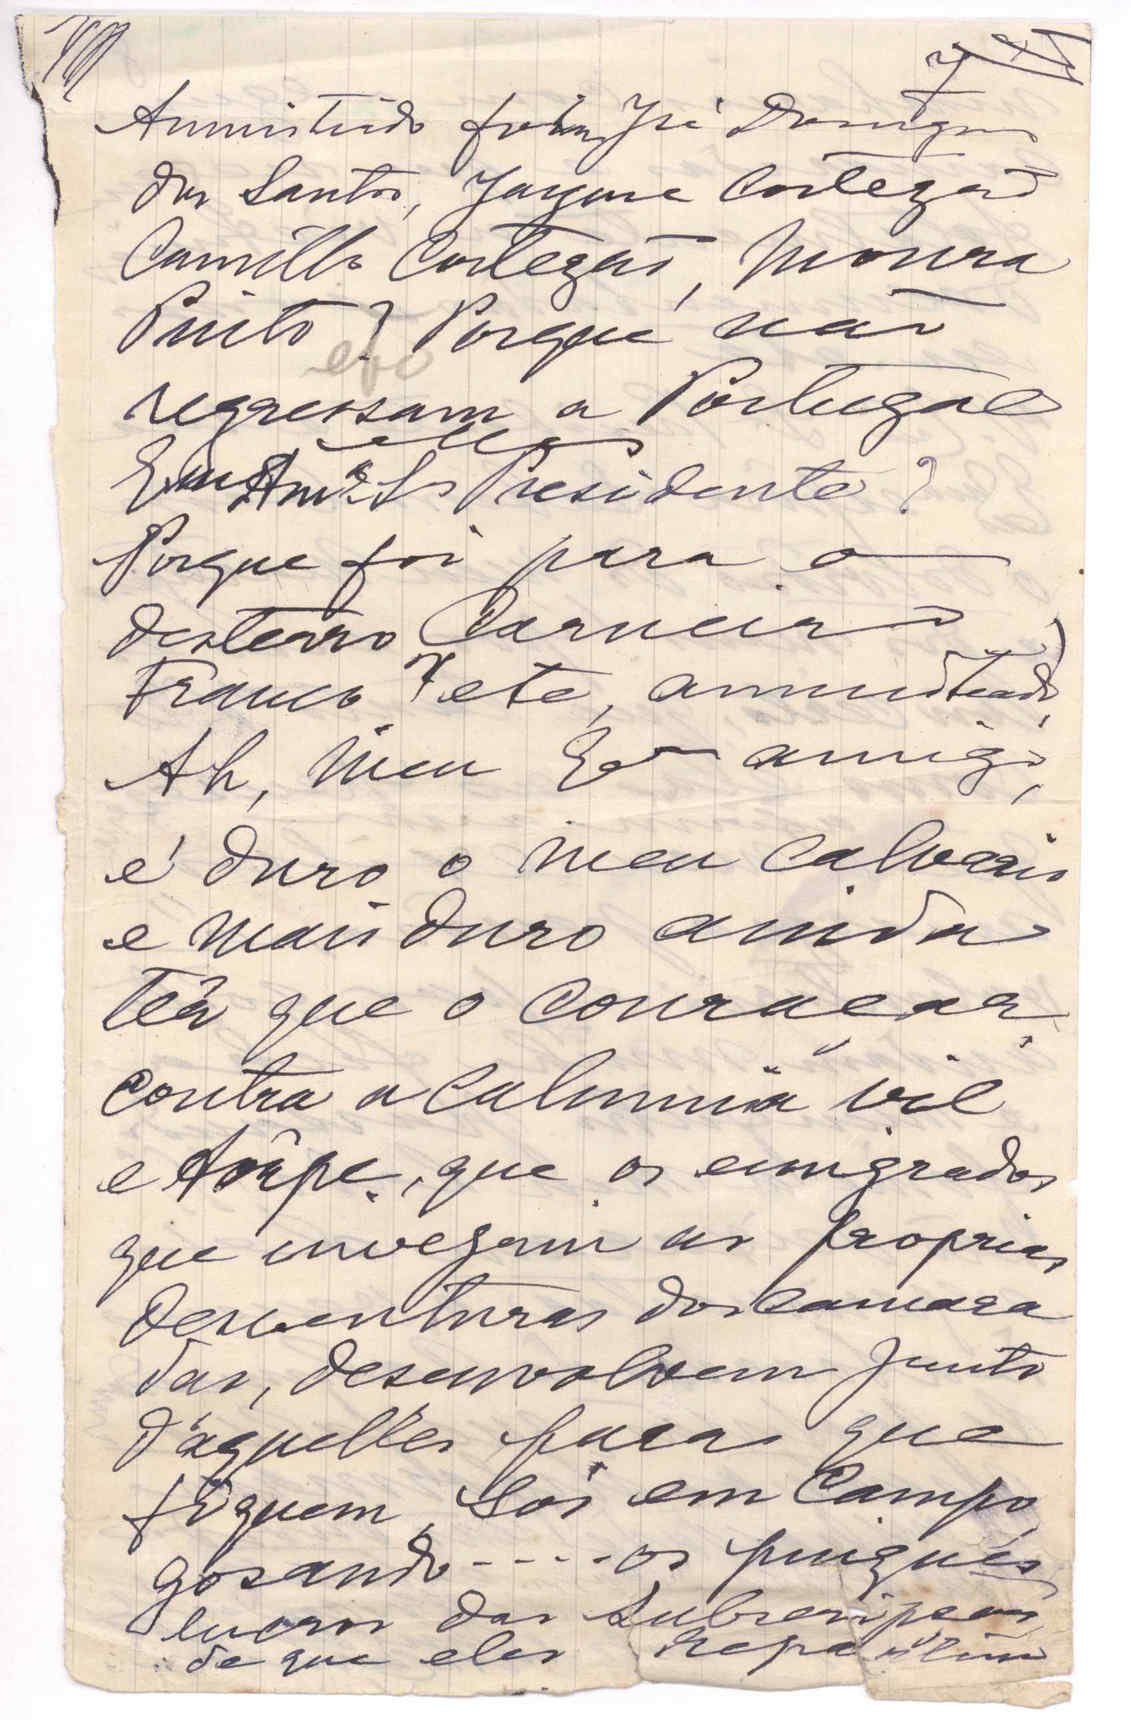 Amnistiado foram José Domingues
dos Santos, Jayme Cortezão
Camillo Cortezão, Moura
Pinto? Porque não
regressam a Portugal
elles
Snr Presidente?
Porque foi para o
desterro Carneiro
Franco, etc, amnistiado,
Ah, Meu Exmo amigo,
é duro o meu calvario
e mais duro ainda
têr que o couraçar
contra a calumnia vil
e torpe, que os emigrados
que invejam as proprias
desventuras dos camara
das, desenvolvem junto
d'aquelles para que
fiquem sós em Campo
gosando - - - - os pingues
lucros das subscripções
de que eles